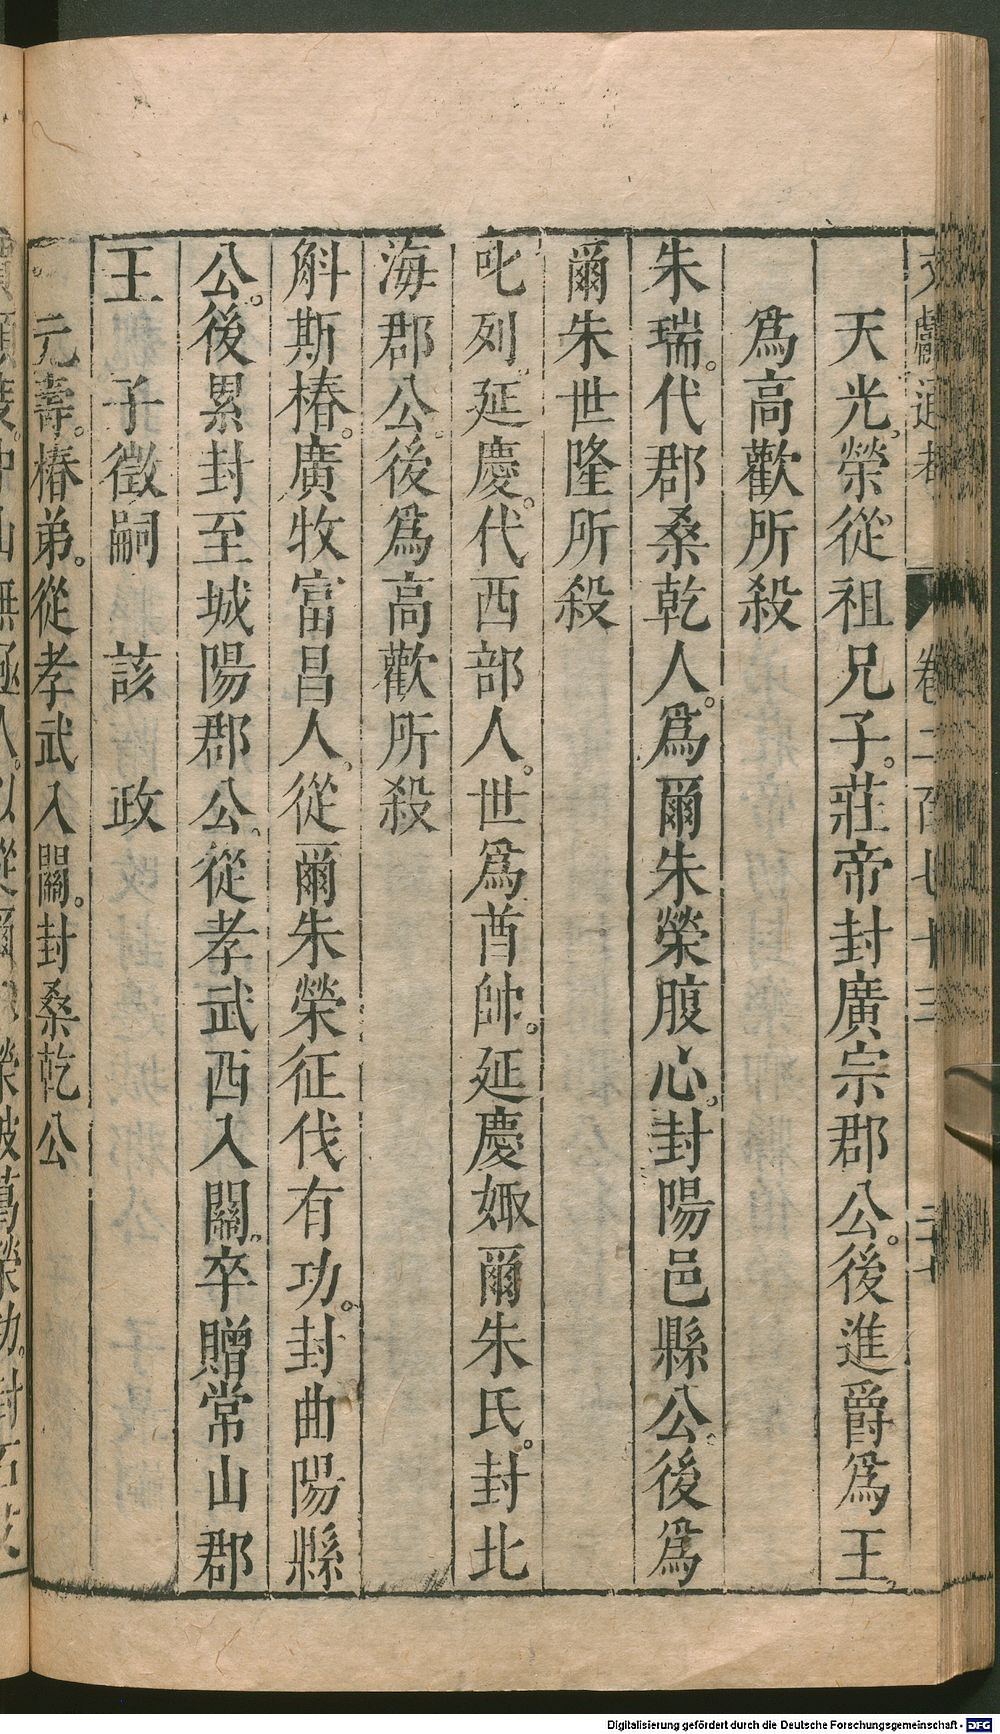 文獻通考 卷二百七十三 二十七
天光榮從祖兄子。莊帝封廣宗郡公。後進爵爲王。
爲高歡所殺
朱瑞。代郡桑乾人。爲爾朱榮腹心。封陽邑縣公。後爲
爾朱世隆所殺
叱列延慶。代西部人。世爲酋帥。延慶娵爾朱氏。封北
海郡公。後爲高歡所殺
斛斯椿。廣牧富昌人。從爾朱榮征伐有功。封曲陽縣
公。後累封至城陽郡公。從孝武西入關。卒贈常山郡
王 子徵嗣 該 政
元壽。椿弟。從孝武入關。封桑乾公
Digitalisierung gefördert durch die Deutsche Forschungsgemeinschaft - DFG